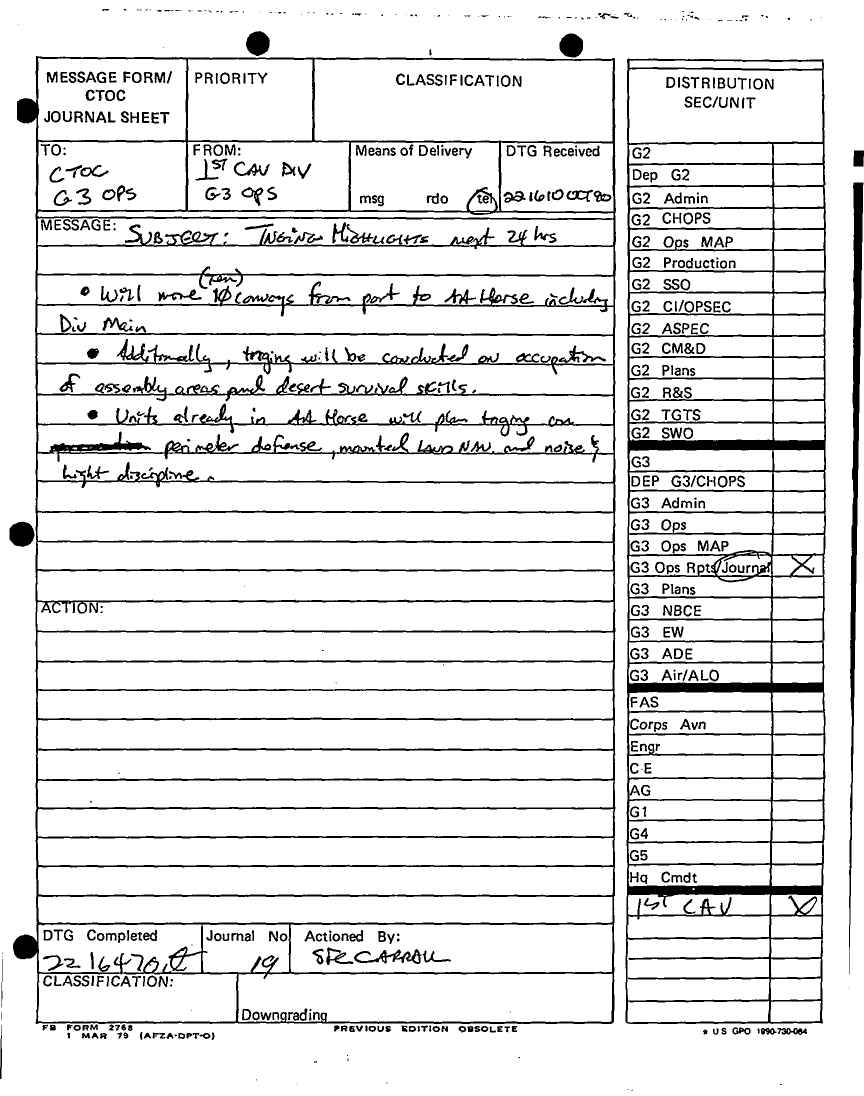 MESSAGE FORM/
CTOC
JOURNAL SHEET
PRIORITY
CLASSIFICATION
TO:
CTOC
G3 OPS
FROM:
1ST CAV DIV
G3 OPS
Means of Delivery
msg rdo tel
DTG Received
221610 OCT90
MESSAGE:
SUBJECT: TNGING HIGHLIGHTS next 24 hrs
(ten)
• Will move 10 convoys from port to AA Horse including
Div Main
• Additionally, tnging will be conducted on occupation
of assembly areas and desert survival skills.
• Units already in AA Horse will plan tnging on
perimeter defense, mounted LAND NAV. and noise &
light discipline.
ACTION:
DTG Completed
221647
Journal No
19
Actioned By:
SPC CARROLL
CLASSIFICATION:
Downgrading
FB FORM 2768
1 MAR 79 (AFZA-DPT-O)
PREVIOUS EDITION OBSOLETE
DISTRIBUTION
SEC/UNIT
G2
Dep G2
G2 Admin
G2 CHOPS
G2 Ops MAP
G2 Production
G2 SSO
G2 CI/OPSEC
G2 ASPEC
G2 CM&D
G2 Plans
G2 R&S
G2 TGTS
G2 SWO
G3
DEP G3/CHOPS
G3 Admin
G3 Ops
G3 Ops MAP
G3 Ops Rpts/Journal X
G3 Plans
G3 NBCE
G3 EW
G3 ADE
G3 Air/ALO
FAS
Corps Avn
Engr
C-E
AG
G1
G4
G5
Hq Cmdt
1ST CAV X
* US GPO 1990-730-064